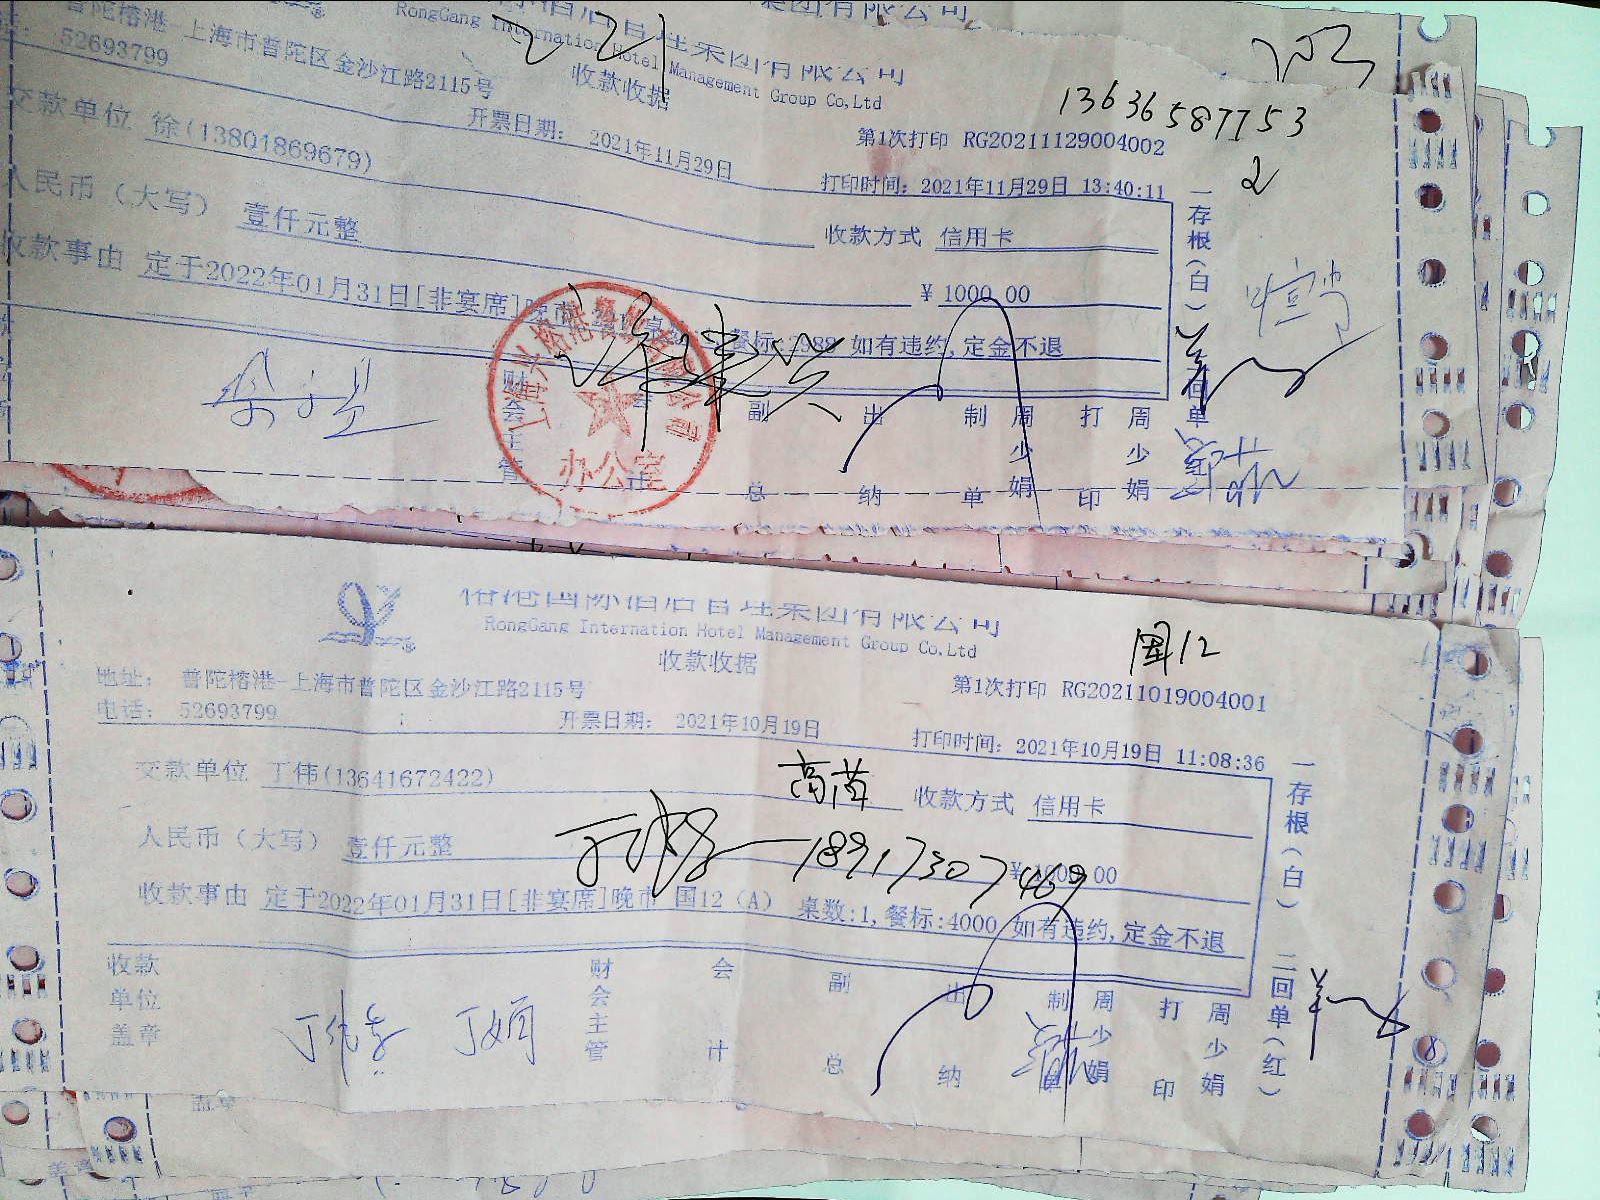 集团有限公司
RongGang International Hotel Management Group Co,Ltd
普陀榕港-上海市普陀区金沙江路2115号
52693799
收款收据
13636587753
2
开票日期： 2021年11月29日
第1次打印 RG20211129004002
打印时间：2021年11月29日 13:40:11
交款单位 徐(13801869679)
收款方式 信用卡
人民币（大写） 壹仟元整
¥ 1000.00
收款事由 定于2022年01月31日[非宴席]晚市 餐标:2988 如有违约,定金不退
一存根(白)
二回单
财会主管
会计
副总
出纳
制单 周少娟
打印 周少娟
办公室
榕港国际酒店管理集团有限公司
RongGang Internation Hotel Management Group Co,Ltd
收款收据
国12
地址： 普陀榕港-上海市普陀区金沙江路2115号
第1次打印 RG20211019004001
电话： 52693799
开票日期： 2021年10月19日
打印时间：2021年10月19日 11:08:36
交款单位 丁伟(13641672422)
收款方式 信用卡
人民币（大写） 壹仟元整
18917307469
¥ 1000.00
收款事由 定于2022年01月31日[非宴席]晚市 国12（A） 桌数:1,餐标:4000 如有违约,定金不退
一存根(白)
二回单(红)
收款单位盖章
财会主管
会计
副总
出纳
制单 周少娟
打印 周少娟
8